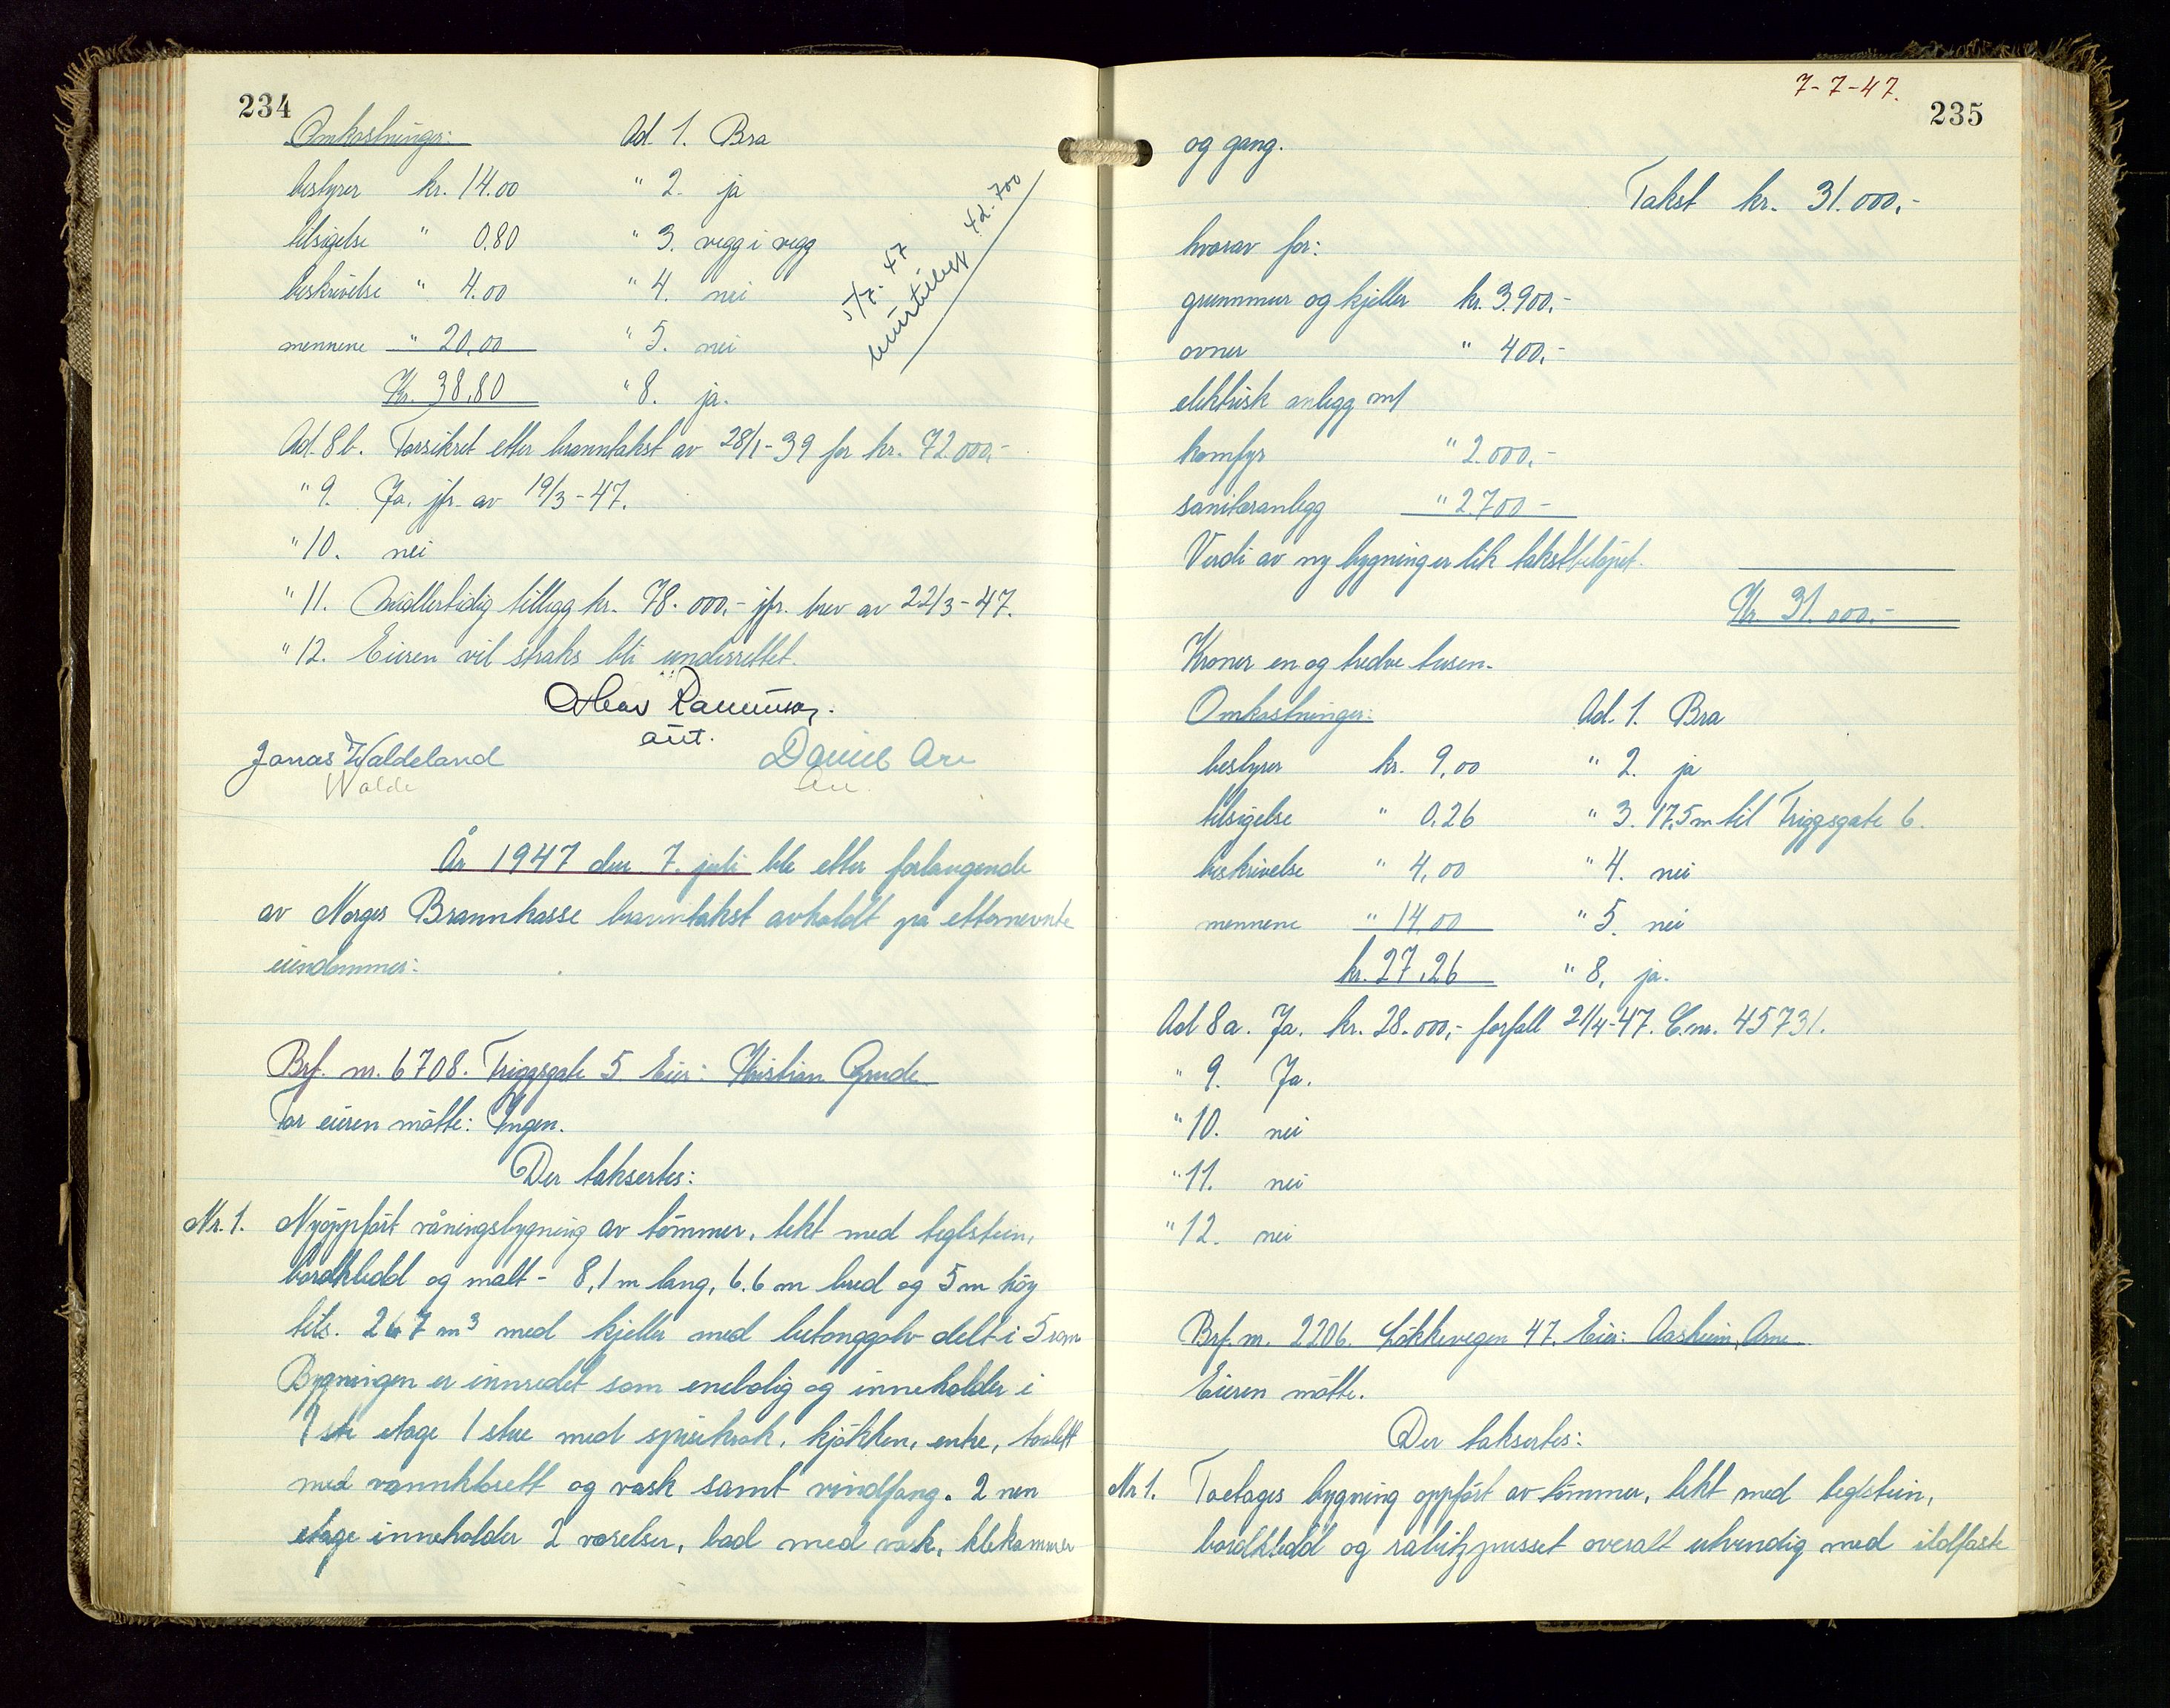 234
Omkostninger: Ad. 1. Bra
bestyrer kr. 14.00 " 2. ja
tilsigelse " 0.80 " 3. vegg i vegg
beskrivelse " 4.00 " 4. nei
mennene " 20.00 " 5. nei
Kr. 38.80 " 8. ja.
Ad. 8 b. Forsikret etter branntakst av 28/1-39 for kr. 72.000,-
" 9. Ja. jfr. av 19/3-47.
" 10. nei
" 11. Midlertidig tillegg kr. 78.000,- jfr. brev av 22/3-47.
" 12. Eieren vil straks bli underrettet.
aut.
Jonas Waldeland Daniel Are
Walde
År 1947 den 7. juli ble etter forlangende
av Norges Brannkasse branntakst avholdt på etternevnte
eiendommer:
Brf. nr. 6708. Triggsgate 5. Eier: Kristian Grude
For eieren møtte: Ingen.
Der taksertes:
Nr. 1. Nyoppført våningsbygning av tømmer, tekt med teglstein,
bordkledd og malt - 8,1 m lang, 6.6 m bred og 5 m høy
tils. 267 m³ med kjeller med betonggolv delt i 5 rom
Bygningen er innredet som enebolig og inneholder i
1ste etage 1 stue med spisekrok, kjøkken, entre, toalett
med vannklosett og vask samt vindfang. 2 nen
etage inneholder 2 værelser, bad med vask, klekammer
7-7-47.
235
og gang.
Takst kr. 31.000,-
hvorav for:
grunnmur og kjeller kr. 3.900,-
ovner " 400,-
elektrisk anlegg m/
komfyr " 2.000,-
sanitæranlegg " 2700 -
Verdi av ny bygning er lik takstbeløpet.
Kr. 31.000,-
Kroner en og tredve tusen.
Omkostninger: Ad. 1. Bra
bestyrer kr. 9,00 " 2. ja
tilsigelse " 0.26 " 3. 17,5 m til Triggsgate 6.
beskrivelse " 4,00 " 4. nei
mennene " 14.00 " 5. nei
kr. 27.26 " 8, ja.
Ad 8 a. Ja. kr. 28.000,- forfall 21/4-47. C.nr. 45731.
" 9. Ja.
" 10. nei
" 11. nei
" 12. nei
Brf. nr. 2206. Løkkevegen 47. Eier: Aasheim, Arne
Eieren møtte.
Der taksertes:
Nr 1. Toetages bygning oppført av tømmer, tekt med teglstein,
bordkledd og rabitzpusset overalt utvendig med ildfaste